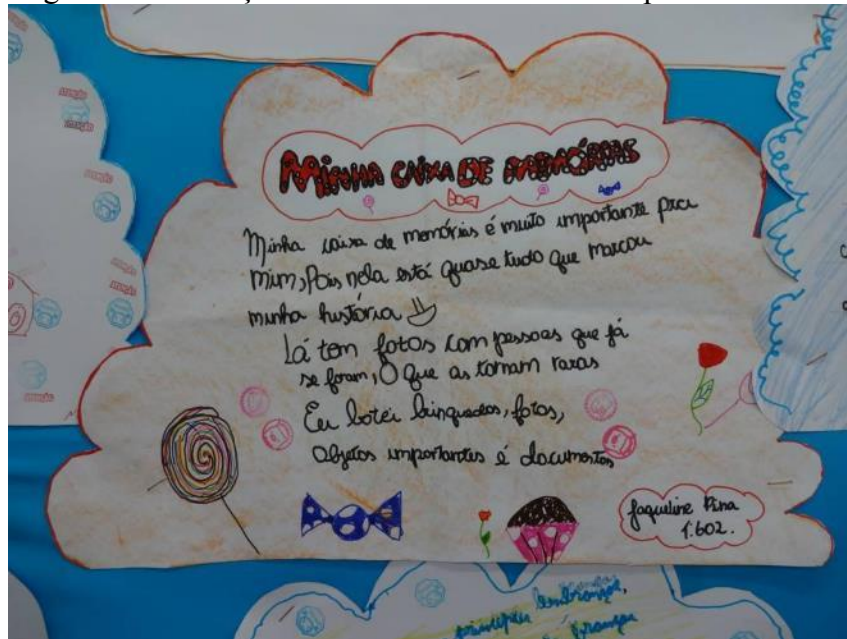 MINHA CAIXA DE MEMÓRIAS
Minha caixa de memórias é muito importante pra
mim, Pois nela está quase tudo que marcou
minha história
Lá tem fotos com pessoas que já
se foram, O que as tornam raras
Eu botei brinquedos, fotos,
Objetos importantes é documentos
Jaqueline Pina
1.602.
ATENÇÃO
ATENÇÃO
ATENÇÃO
ATENÇÃO
lembranças,